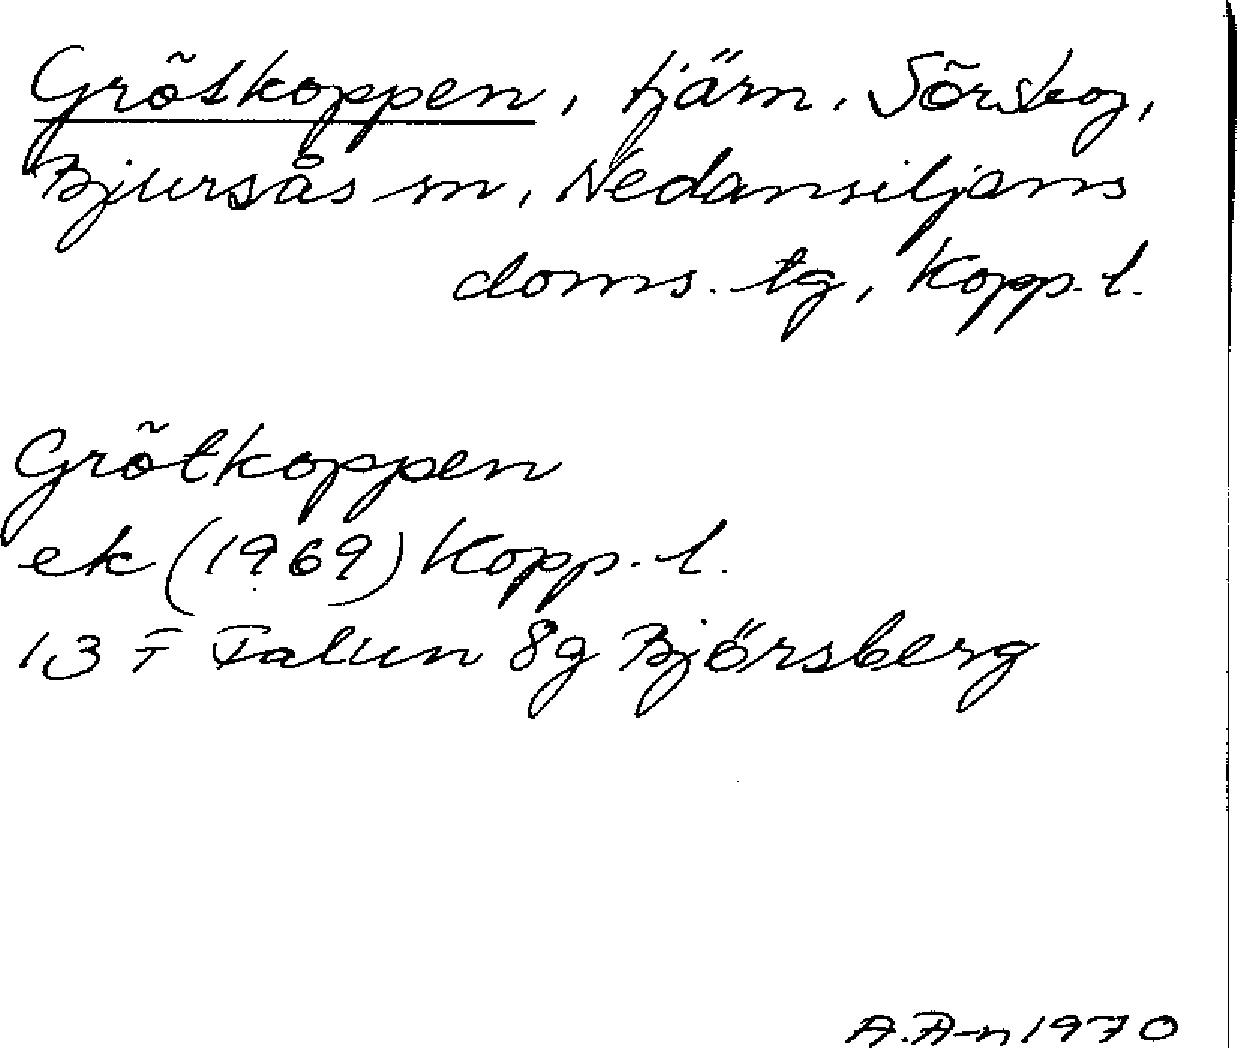 Grötkoppen, tjärn. Sörskog,
Bjursås sn, Nedansiljans
doms. tg, Kopp. l.
Grötkoppen
ek (1969) Kopp. l.
13 F Falun 8g Bjórsberg
A.A-n 1970